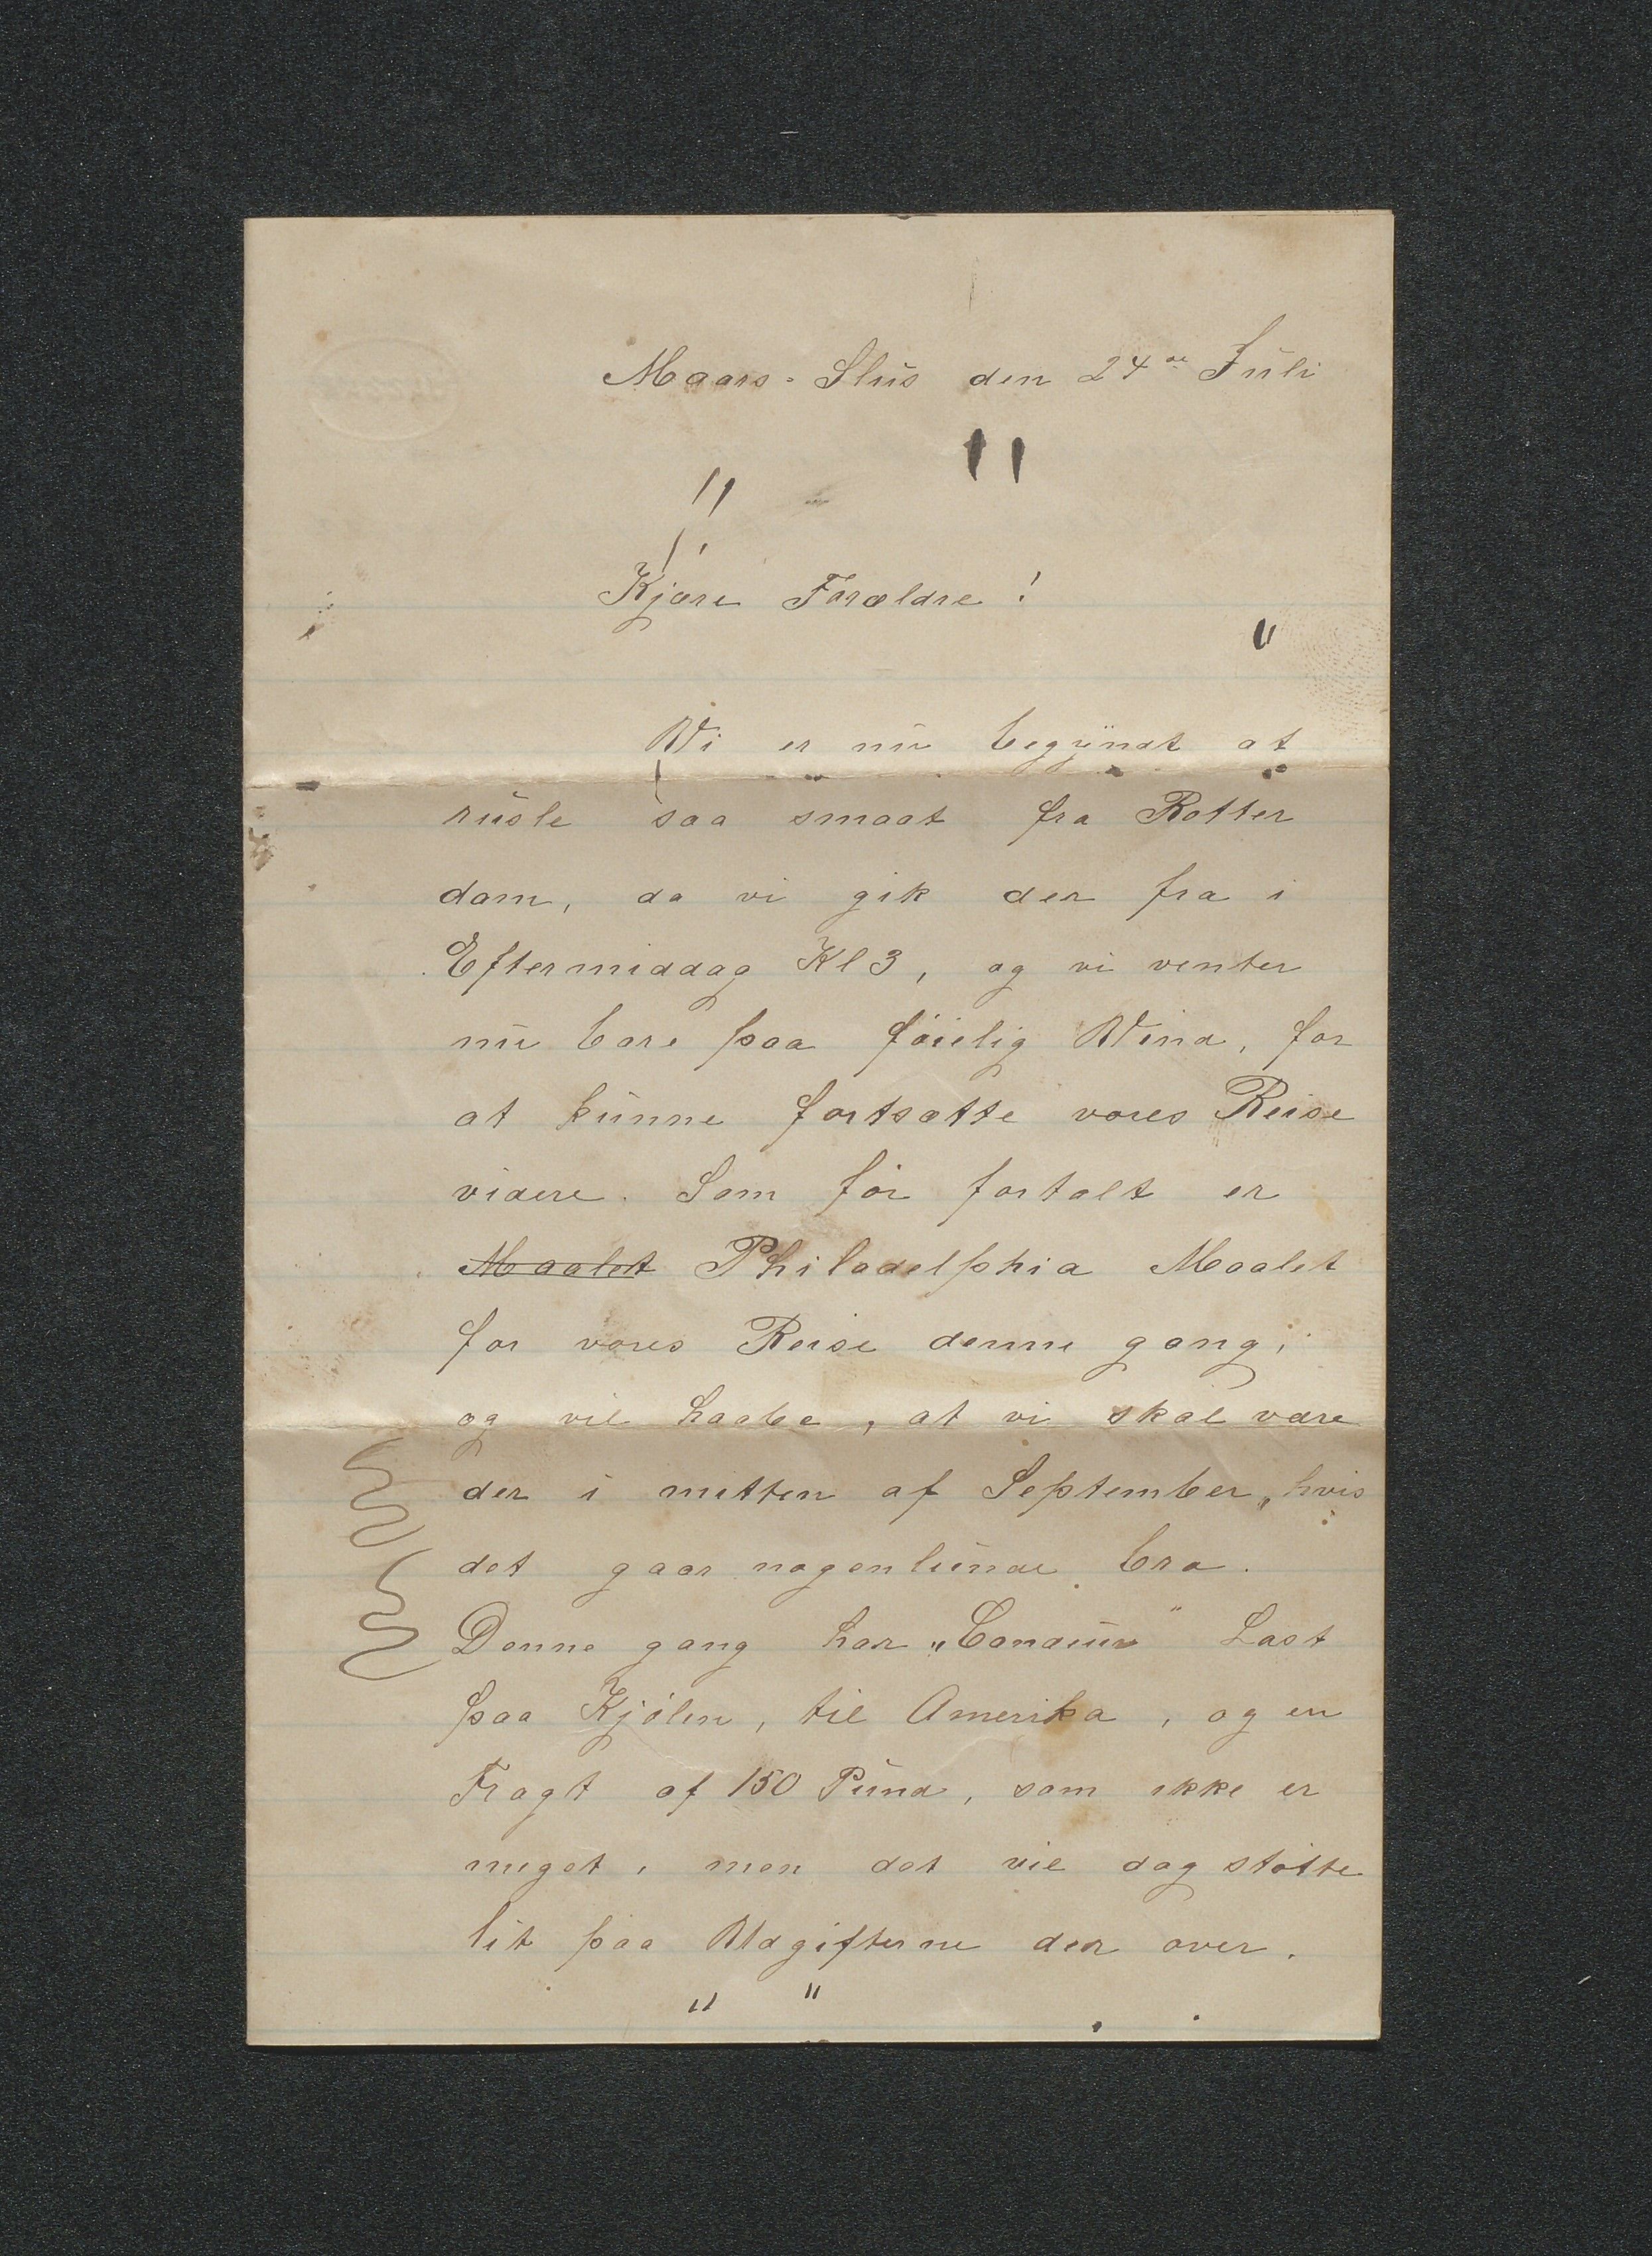 Maars-Slus den 24de Juli
Kjære Forældre!
Vi er nu begyndt at
rusle saa smaat fra Rotter
dam, da vi gik der fra i
Eftermiddag Kl 3, og vi venter
nu bare paa føielig Vind, for
at kunne fortsætte vores Reise
videre. Som før fortalt er
Maalet Philadelphia Maalet
for vores Reise denne gang,
og vil haabe, at vi skal være
der i mitten af September, hvis
det gaar nogenlunde bra.
Denne gang har „ " Last
paa Kjølen, til Amerika, og en
Fragt af 150 Pund, som ikke er
meget, men det vil dog støtte
lit paa Udgifterne der over.